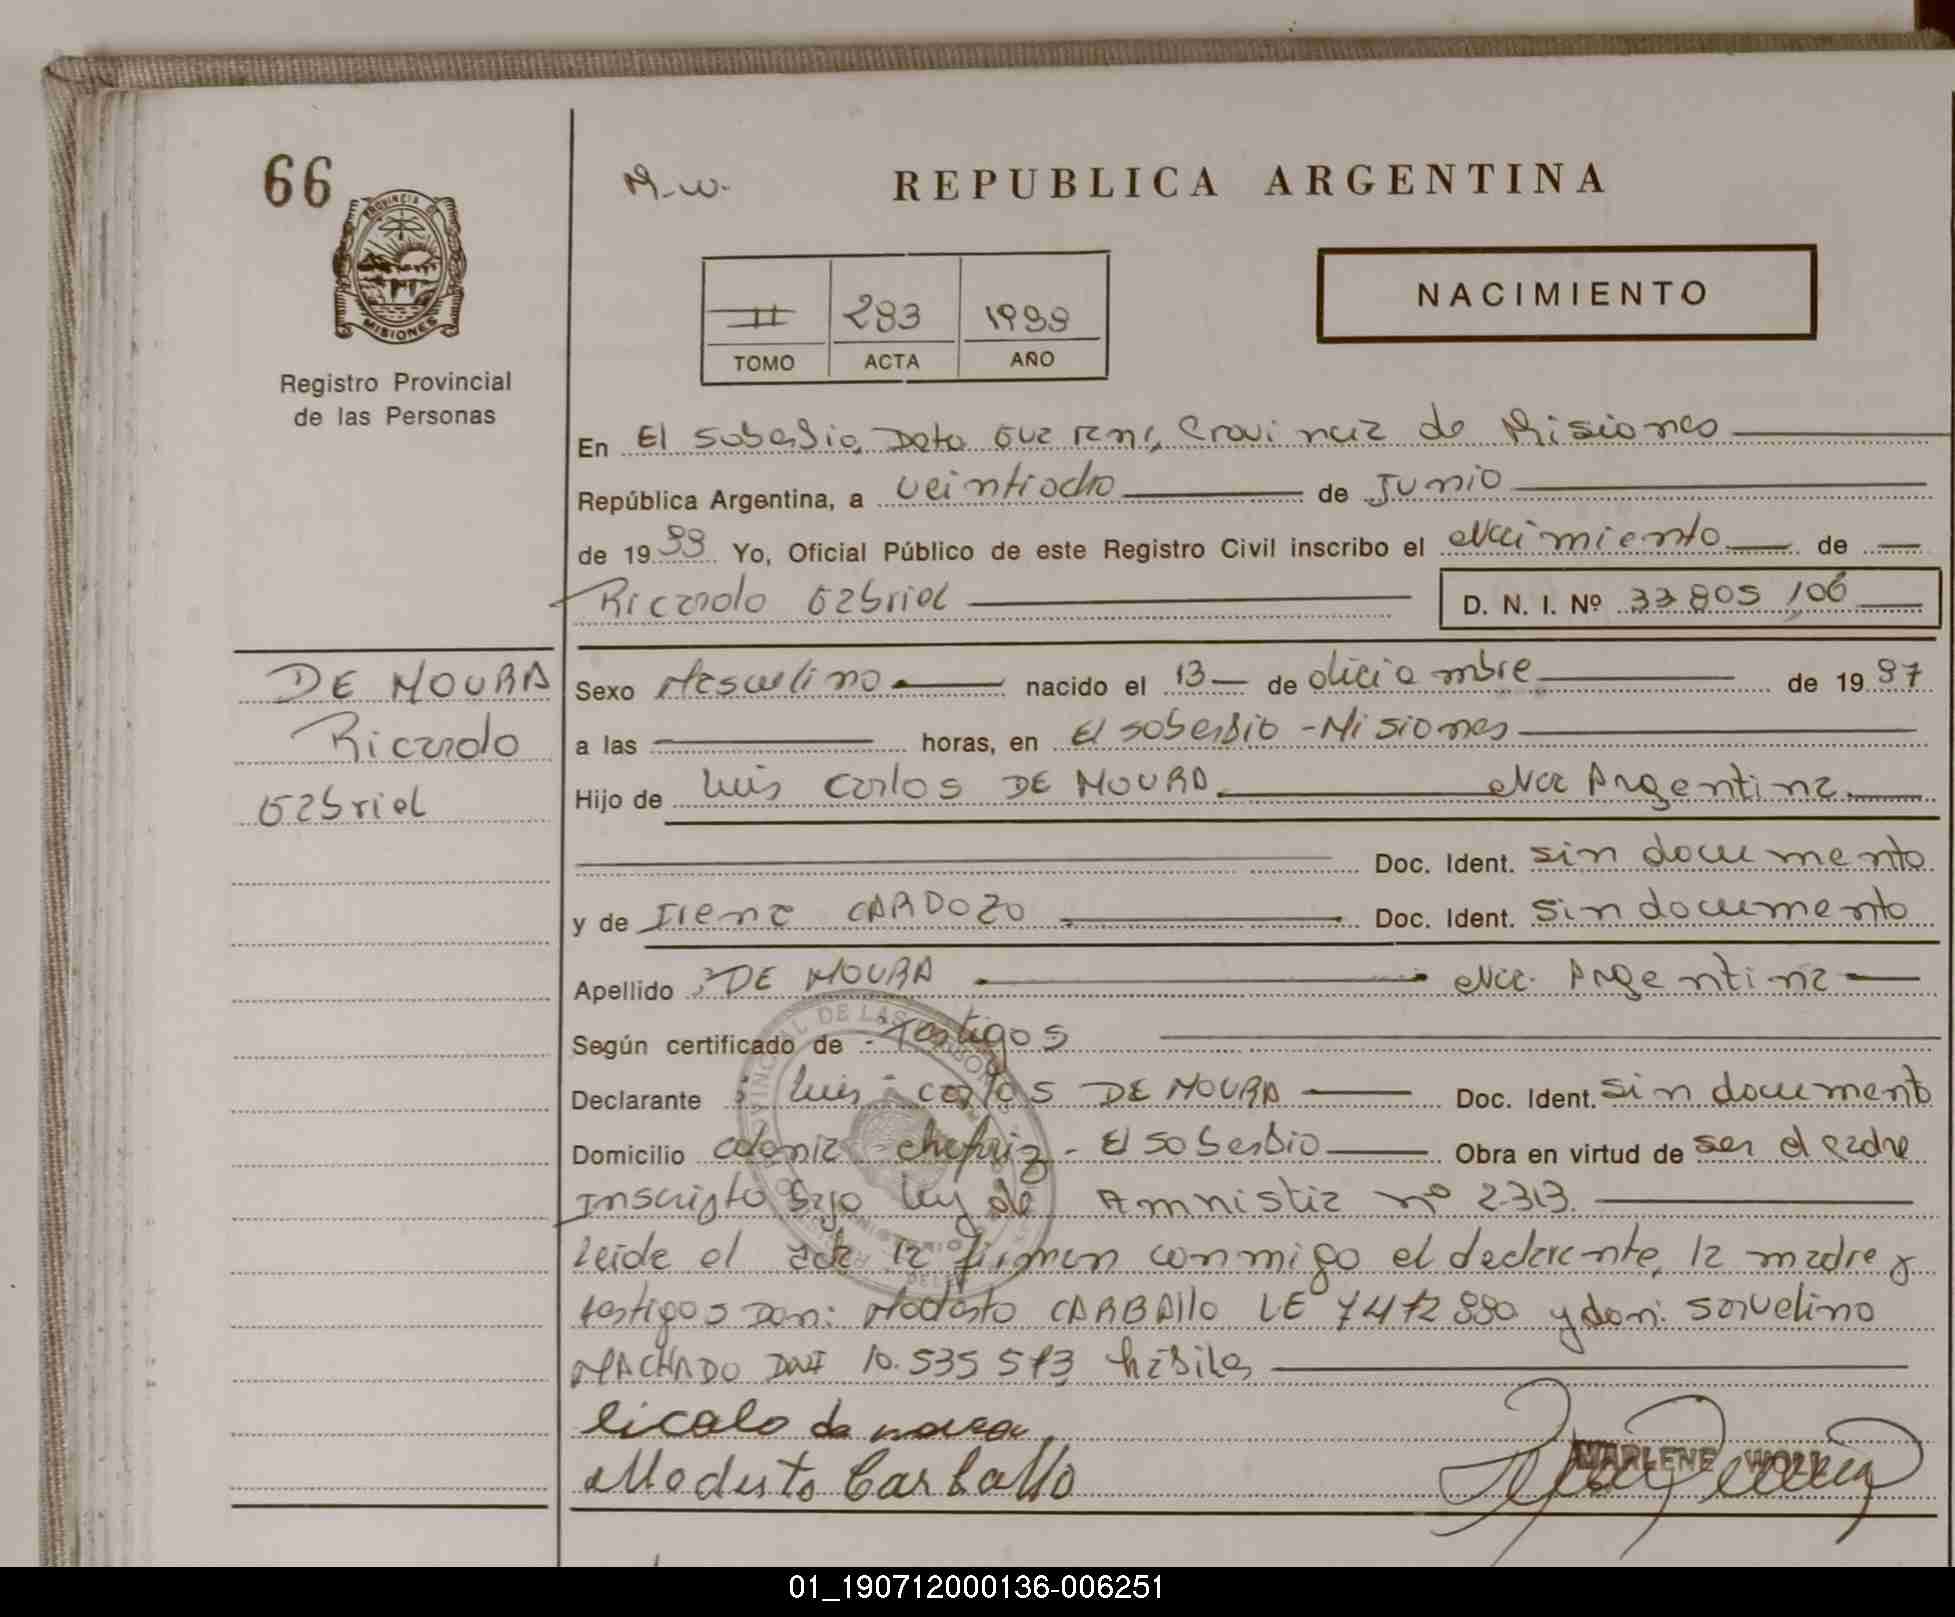 66
M.W.
REPUBLICA ARGENTINA
PROVINCIA DE
MISIONES
Registro Provincial
de las Personas
II 283 1999
TOMO ACTA AÑO
NACIMIENTO
En El Soberbio, Dpto Guarani, Provincia de Misiones
República Argentina, a veintiocho de Junio
de 1999 Yo, Oficial Público de este Registro Civil inscribo el Nacimiento de
Ricardo Gabriel D. N. I. Nº 33 805 106
DE MOURA
Ricardo
Gabriel
Sexo Masculino nacido el 13 de diciembre de 1987
a las horas, en El Soberbio - Misiones
Hijo de Luis Carlos DE MOURA Nac Argentina
Doc. Ident. sin documento
y de Irena CARDOZO Doc. Ident. sin documento
Apellido DE MOURA Nac. Argentina
Según certificado de Testigos
Declarante Luis Carlos DE MOURA Doc. Ident. sin documento
Domicilio colonia - El Soberbio Obra en virtud de ser el padre
Inscripto bajo ley de Amnistia nº 2313.
Leida el acta la firman conmigo el declarante, la madre y
testigos Don: Modesto CARBALLO LE 7472880 y don: Sorvelino
MACHADO DNI 10.535 573 hábiles
Modesto Carballo
MARLENE
01_190712000136-006251